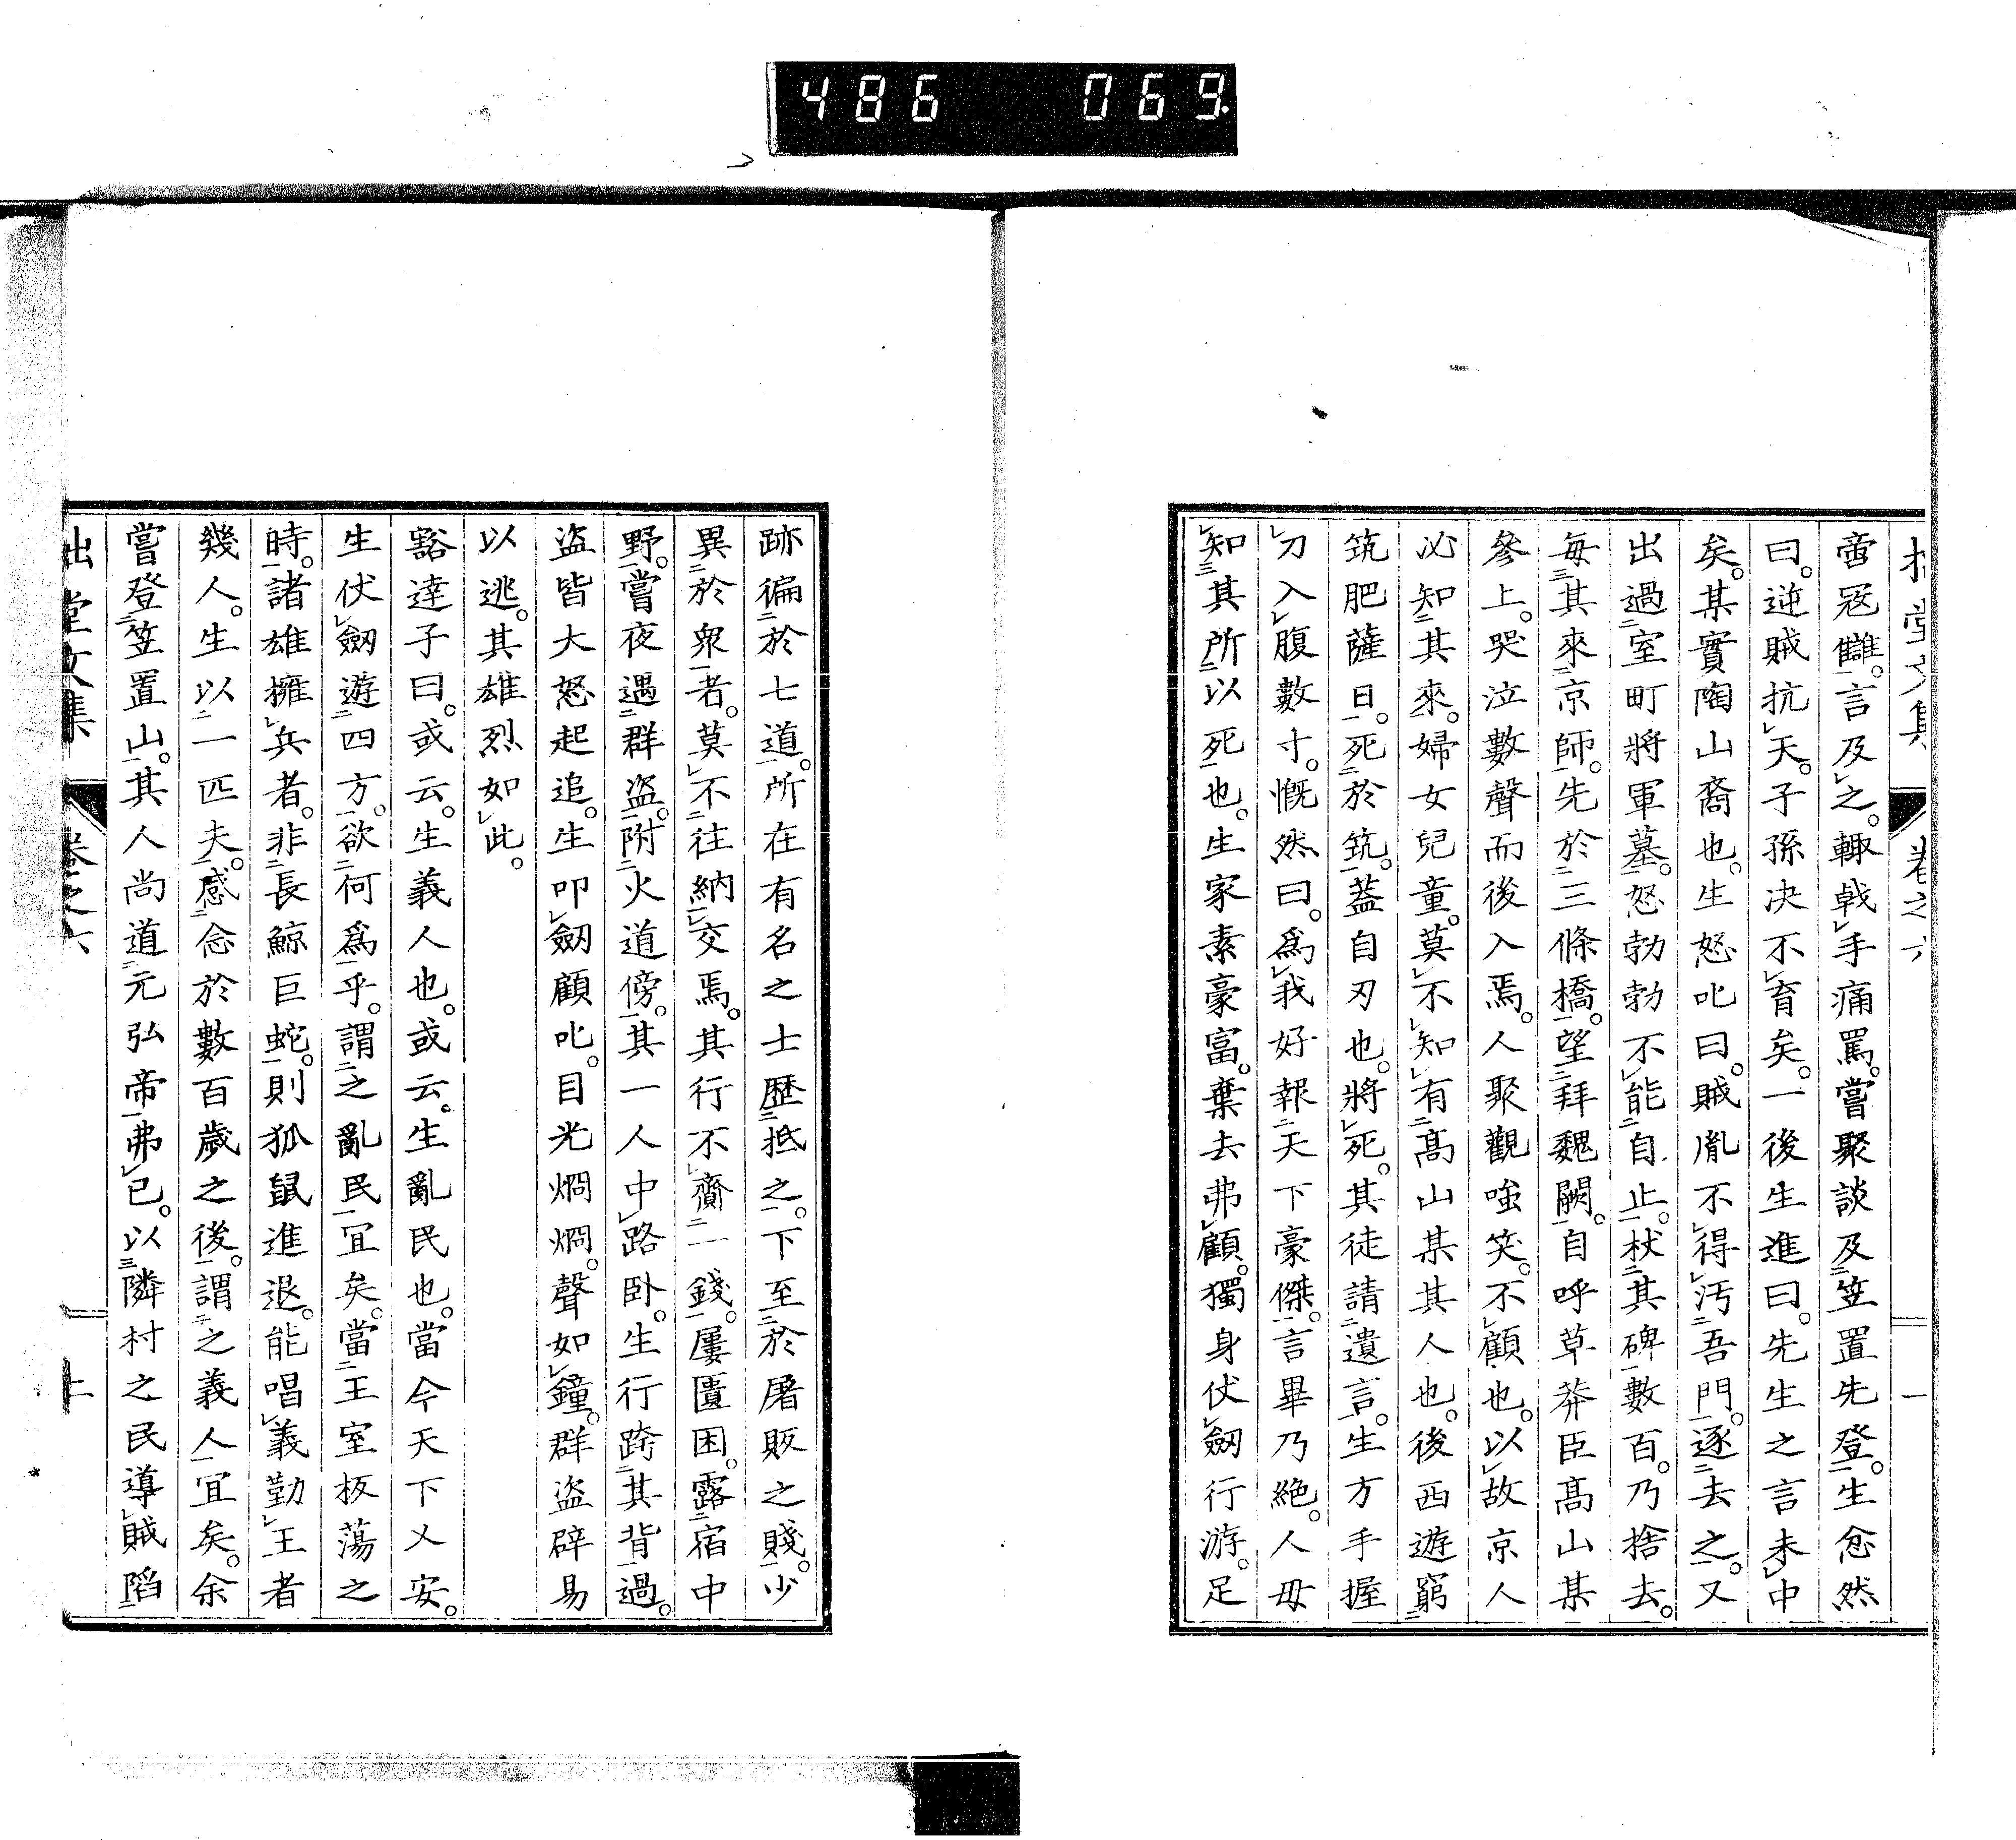 486 069.
啻寇讎。言及之。輙戟手痛罵。嘗聚談及笠置先登。生忿然
曰。逆賊抗天。子孫决不育矣。一後生進曰。先生之言未中
矣。某實陶山裔也。生怒叱曰。賊胤不得汚吾門。逐去之。又
出過室町將軍墓。怒勃勃不能自止。杖其碑數百。乃捨去。
每其來京師。先於三條橋。望拜魏闕。自呼草莽臣髙山某
參上。哭泣數聲而後入焉。人聚觀嗤笑。不顧也。以故京人
必知其來。婦女兒童。莫不知有髙山某其人也。後西遊窮
筑肥薩日。死於筑。蓋自刃也。將死。其徒請遺言。生方手握
刀入腹數寸。慨然曰。爲我好報天下豪傑。言畢乃絶。人毋
知其所以死也。生家素豪富。棄去弗顧。獨身伏劒行游。足
跡徧於七道。所在有名之士歴抵之。下至於屠販之賤。少
異於衆者。莫不往納交焉。其行不齎一錢。屢匱困。露宿中
野。嘗夜遇群盜。附火道傍。其一人中路卧。生行跨其背過。
盜皆大怒起追。生叩劒顧叱。目光烱烱。聲如鐘。群盜辟易
以逃。其雄烈如此。
豁達子曰。或云。生義人也。或云。生亂民也。當今天下乂安。
生伏劒遊四方。欲何爲乎。謂之亂民宜矣。當王室板蕩之
時。諸雄擁兵者。非長鯨巨蛇。則狐鼠進退。能唱義勤王者
幾人。生以一匹夫。感念於數百歲之後。謂之義人宜矣。余
嘗登笠置山。其人尚道元弘帝弗已。以隣村之民導賊陷
堂文集 卷之六